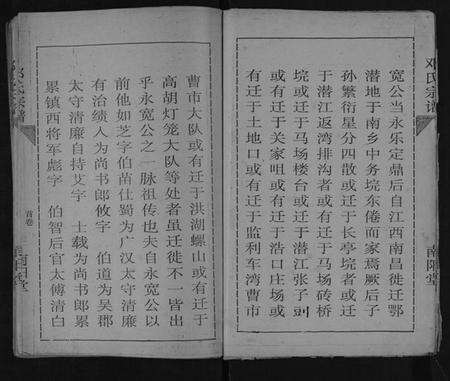 邓氏宗谱
宽公当永乐定鼎后自江西南昌徙迁鄂
潜地于南乡中务垸东偆而家焉厥后子
孙繁衍星分四散或迁于长亭垸者或迁
于潜江返湾排沟者或有迁于马场砖桥
垸或迁于马场楼台或迁于潜江张子剅
或有迁于关家咀或有迁于浩口庄场或
有迁于土地口或有迁于监利车湾曹市
南阳堂
曹市大队或有迁于洪湖螺山或有迁于
高胡灯笼大队等处者虽迁徙不一皆出
乎永宽公之一脉祖传也夫自永宽公以
前他如芝字伯苗仕蜀为广汉太守清廉
有治绩人为尚书郎攸字 伯道为吴郡
太守清廉自持艾字 士载为尚书郎累
累镇西将军彪字 伯智后官太傅清白
首卷